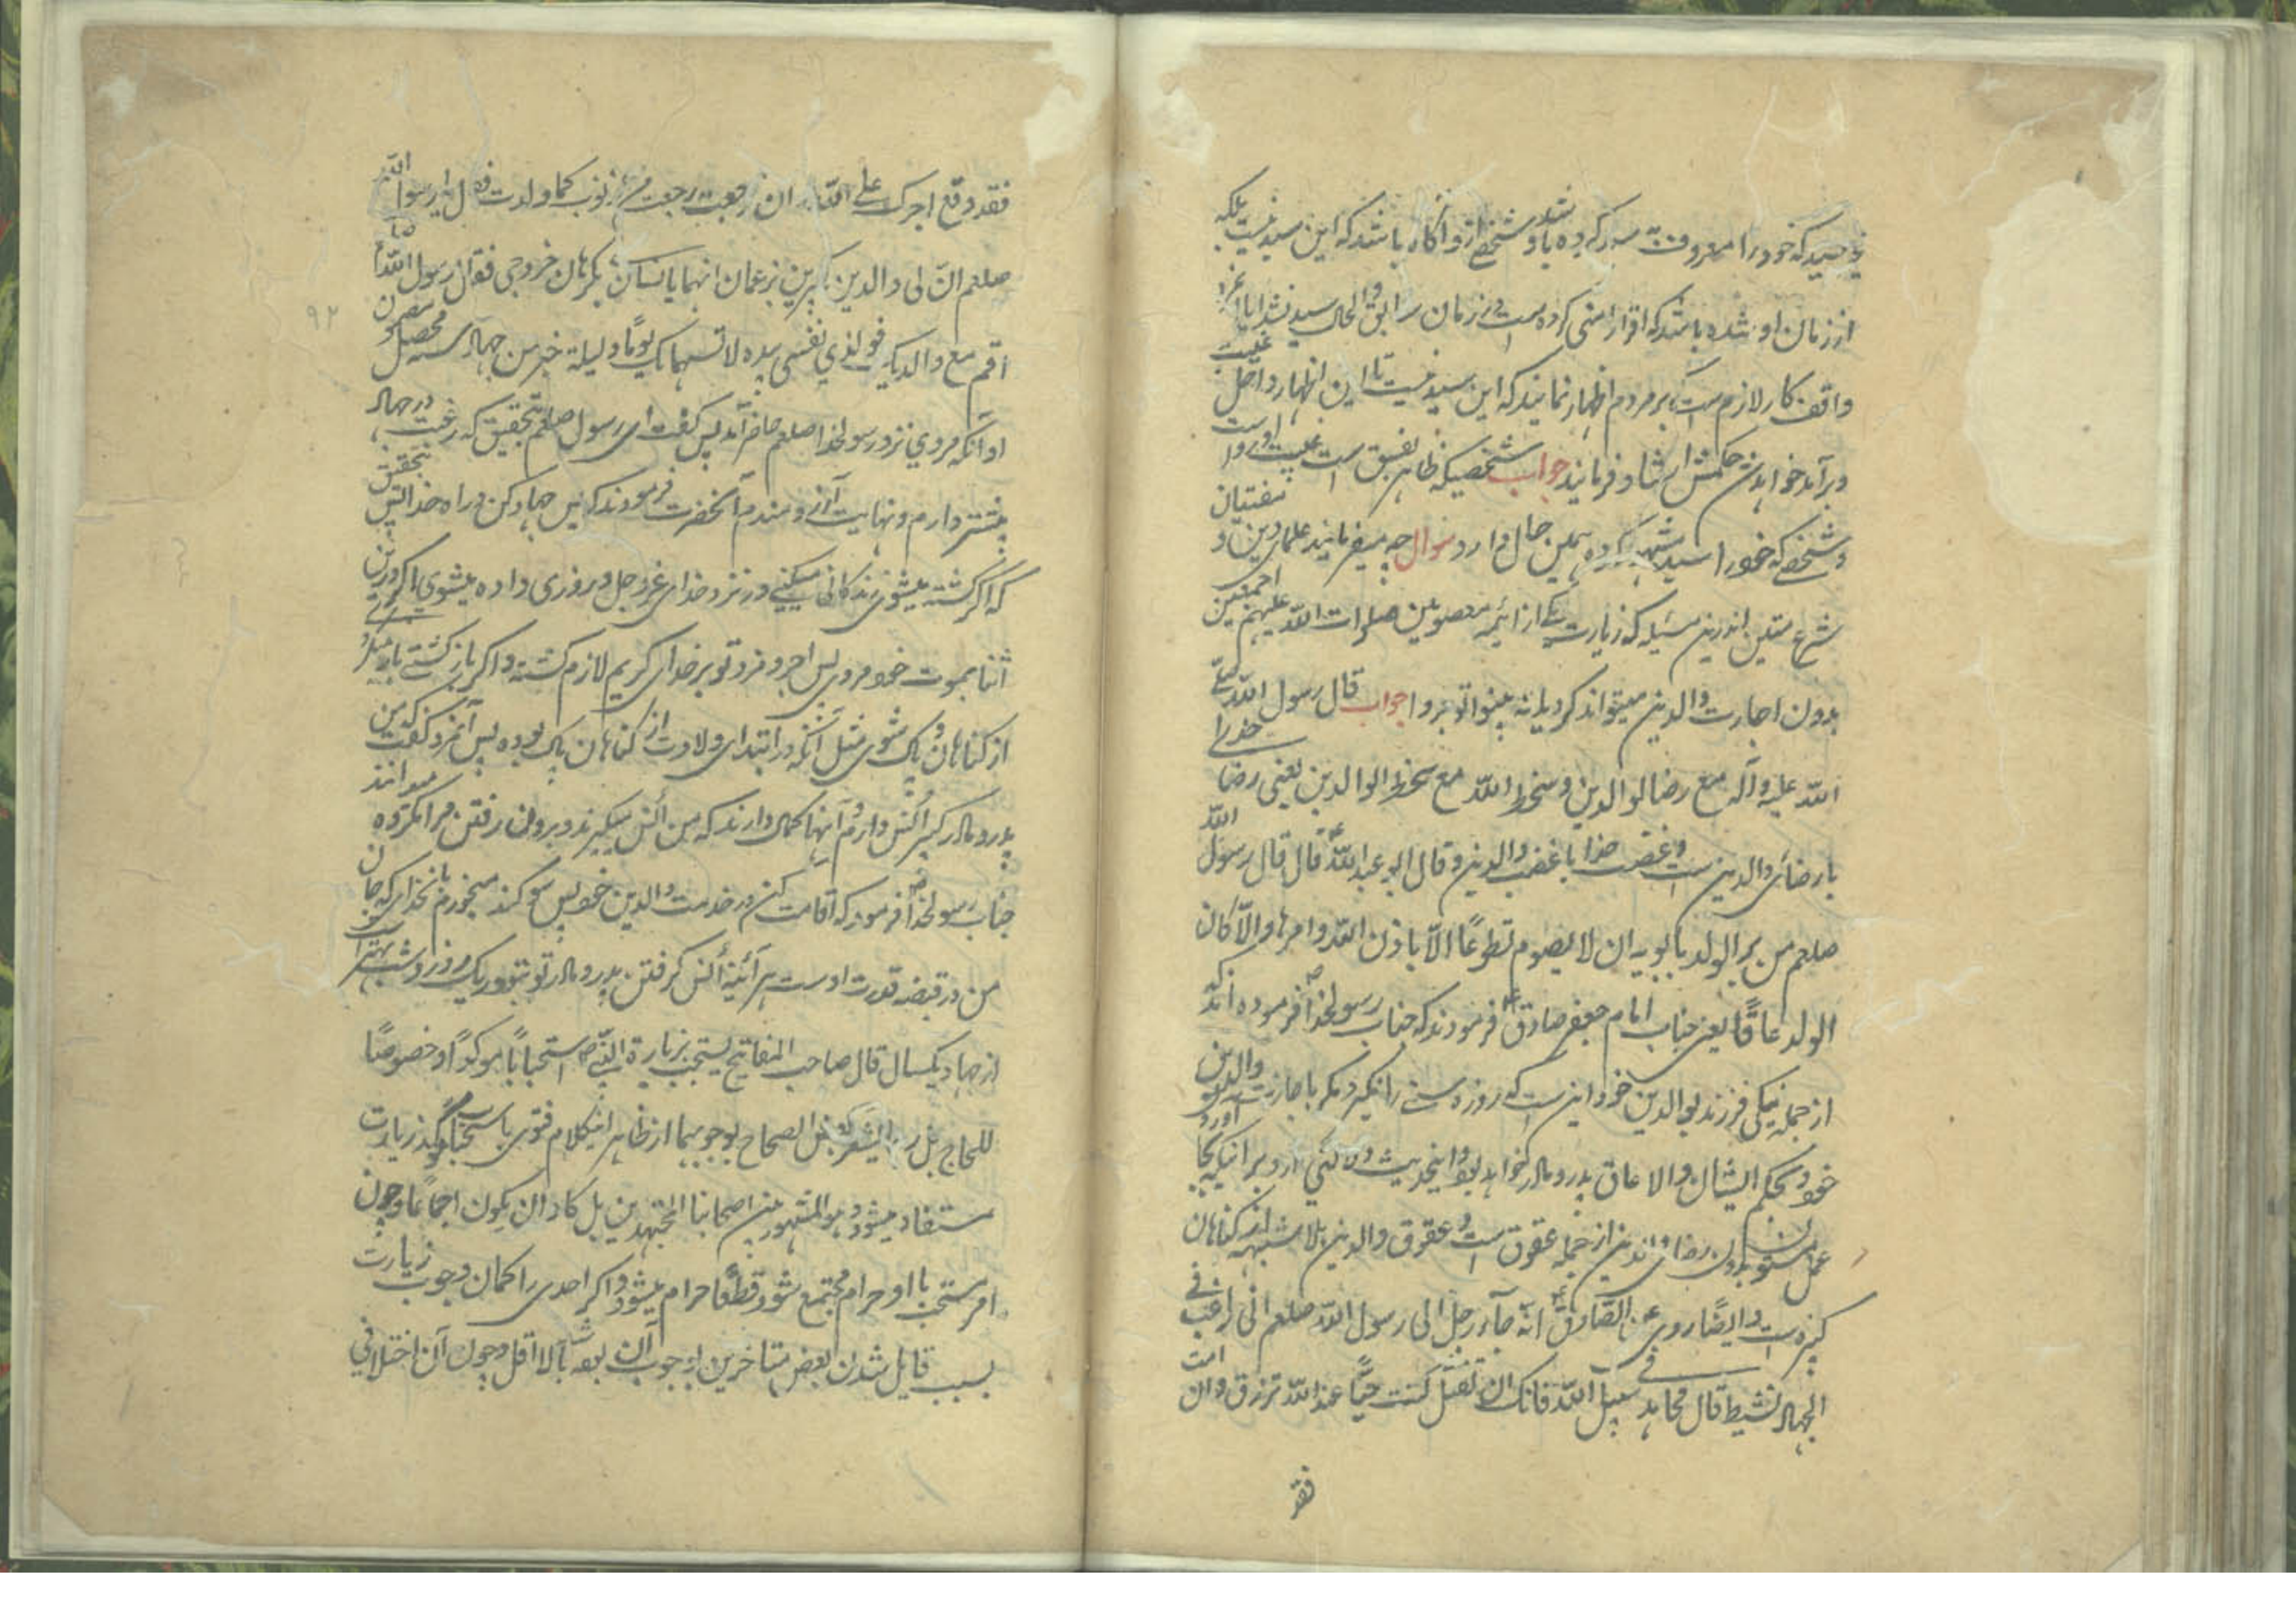 که خود را معروف بسید کرده باشد و شخصی ازو آگاه باشد که این سید نیست بلکه
از زمان او شده باشد که اقرار کرده است در زمان سابق و الحال سید شد آیا
واقف کار لازم است بر مردم اظهار نمایند که این سید نیست تا این اظهار داخل غیبت
در آمد خواهد شد حکمش ارشاد فرمایند جواب شخصیکه ظاهر بفسق است غیبت او رواست
و شخصی که خود را سید مشهور کرده همین حال دارد سوال چه میفرمایند علمای دین و مفتیان
شرع متین اندرین مسئله که زیارت یکی از ائمه معصومین صلوات الله علیهم اجمعین
بدون اجازت والدین میتواند کرد یا نه بینوا توجروا جواب قال رسول الله صلی
الله علیه و آله مع رضا الوالدین و سخط الله مع سخط الوالدین یعنی رضا خدای
با رضای والدین ست و غضب خدا با غضب والدین و قال ابو عبد الله ع قال قال رسول الله
صلعم من بر الولد بابویه ان لا یصوم تطوعًا الّا باذن الله و امرها و الّا کان
الولد عاقًا یعنی جناب امام جعفر صادق ع فرمودند که جناب رسولخدا ص فرموده اند که
از جمله نیکی فرزند بوالدین خود این ست که روزه سنتی را نگیرد مگر باجازت والدین
خود و بحکم ایشان و الا عاق پدر و مادر خواهد بود و اینحدیث دلالت دارد بر اینکه بجا آوردن
عمل سنتی بدون رضای والدین از جمله عقوق ست و عقوق والدین بلا شبهه از گناهان
کبیره است و ایضًا روی عن الصّادق ع انّه جاء رجل الی رسول الله صلعم انی راغب فی
الجهاد نشیط قال فجاهد فی سبیل الله فانک ان تقتل کنت حیًّا عند الله ترزق و ان امت
فقد
فقد وقع اجرک علی الله و ان رجعت رجعت من الذنوب کما ولدت فقال یا رسول الله
صلعم انّ لی والدین کبیرین یزعمان انهما یانسان بی و یکرهان خروجی فقال رسول الله ص
اقم مع والدیک فوالذی نفسی بیده لانسهما بک یومًا و لیلة خیر من جهاد سنه محصل مضمون
او آنکه مردی نزد رسولخدا صلعم حاضر آمد پس گفت ای رسول صلعم بتحقیق که رغبت در جهاد
بیشتر دارم و نهایت آرزومندم آنحضرت فرمودند که پس جهاد کن در راه خدا پس بتحقیق
که اگر کشته میشوی زندگانی میکنی در نزد خدای عزوجل و روزی داده میشوی اگر درین
اثنا بموت خود مردی پس اجر و مزد تو بر خدای کریم لازم گشته و اگر باز گشتی
از گناهان پاک شوی مثل آنکه در ابتدای ولادت از گناهان پاک بوده پس آنمرد گفت که من
پدر و مادر کبیر السن دارم آنها گمان دارند که بمن انس میگیرند و بیرون رفتن مرا مکروه میدانند
جناب رسولخدا ص فرمود که اقامت کن در خدمت والدین خود پس سوگند میخورم بخدای که جان
من در قبضه قدرت اوست هر آئینه انس گرفتن پدر و مادر تو بتو در یک روز و شب بهتر است
از جهاد یکسال قال صاحب المفاتیح یستحب زیارة النبی ص استحبابًا موکدًا و خصوصًا
للحاج بل بعض الصحاح بوجوبها از ظاهر اینکلام فتوی باستحباب زیارت
مستفاد میشود و هو المشهور بین اصحابنا المجتهدین بل کاد ان یکون اجماعًا و چون
امر مستحب با او حرام مجتمع شود قطعًا حرام میشود و اگر احدی را گمان وجوب زیارت
بسبب قایل شدن بعض متاخرین بوجوب آن بوده باشد لا اقل وجوب آن اختلافی
۹۲